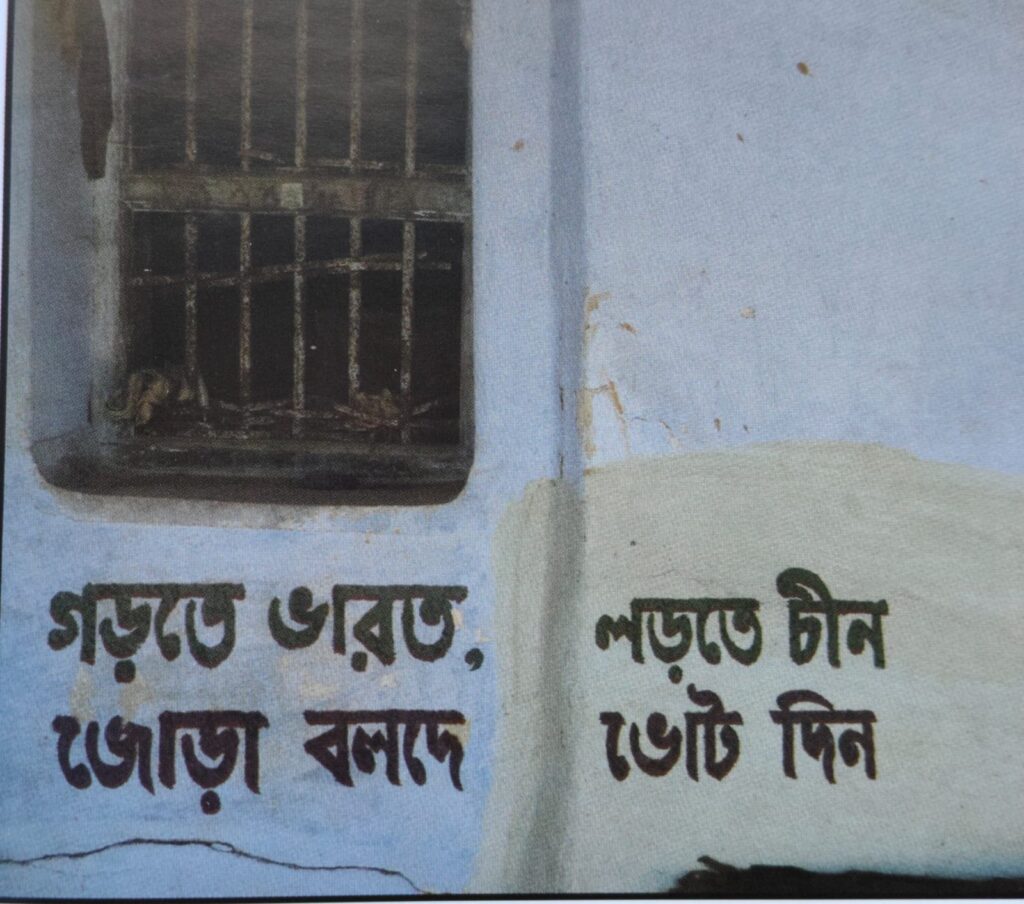 গড়তে ভারত, লড়তে চীন
জোড়া বলদে ভোট দিন